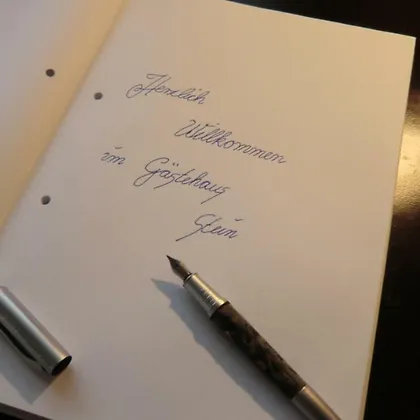 Herzlich
Willkommen
im Gästehaus
Stein